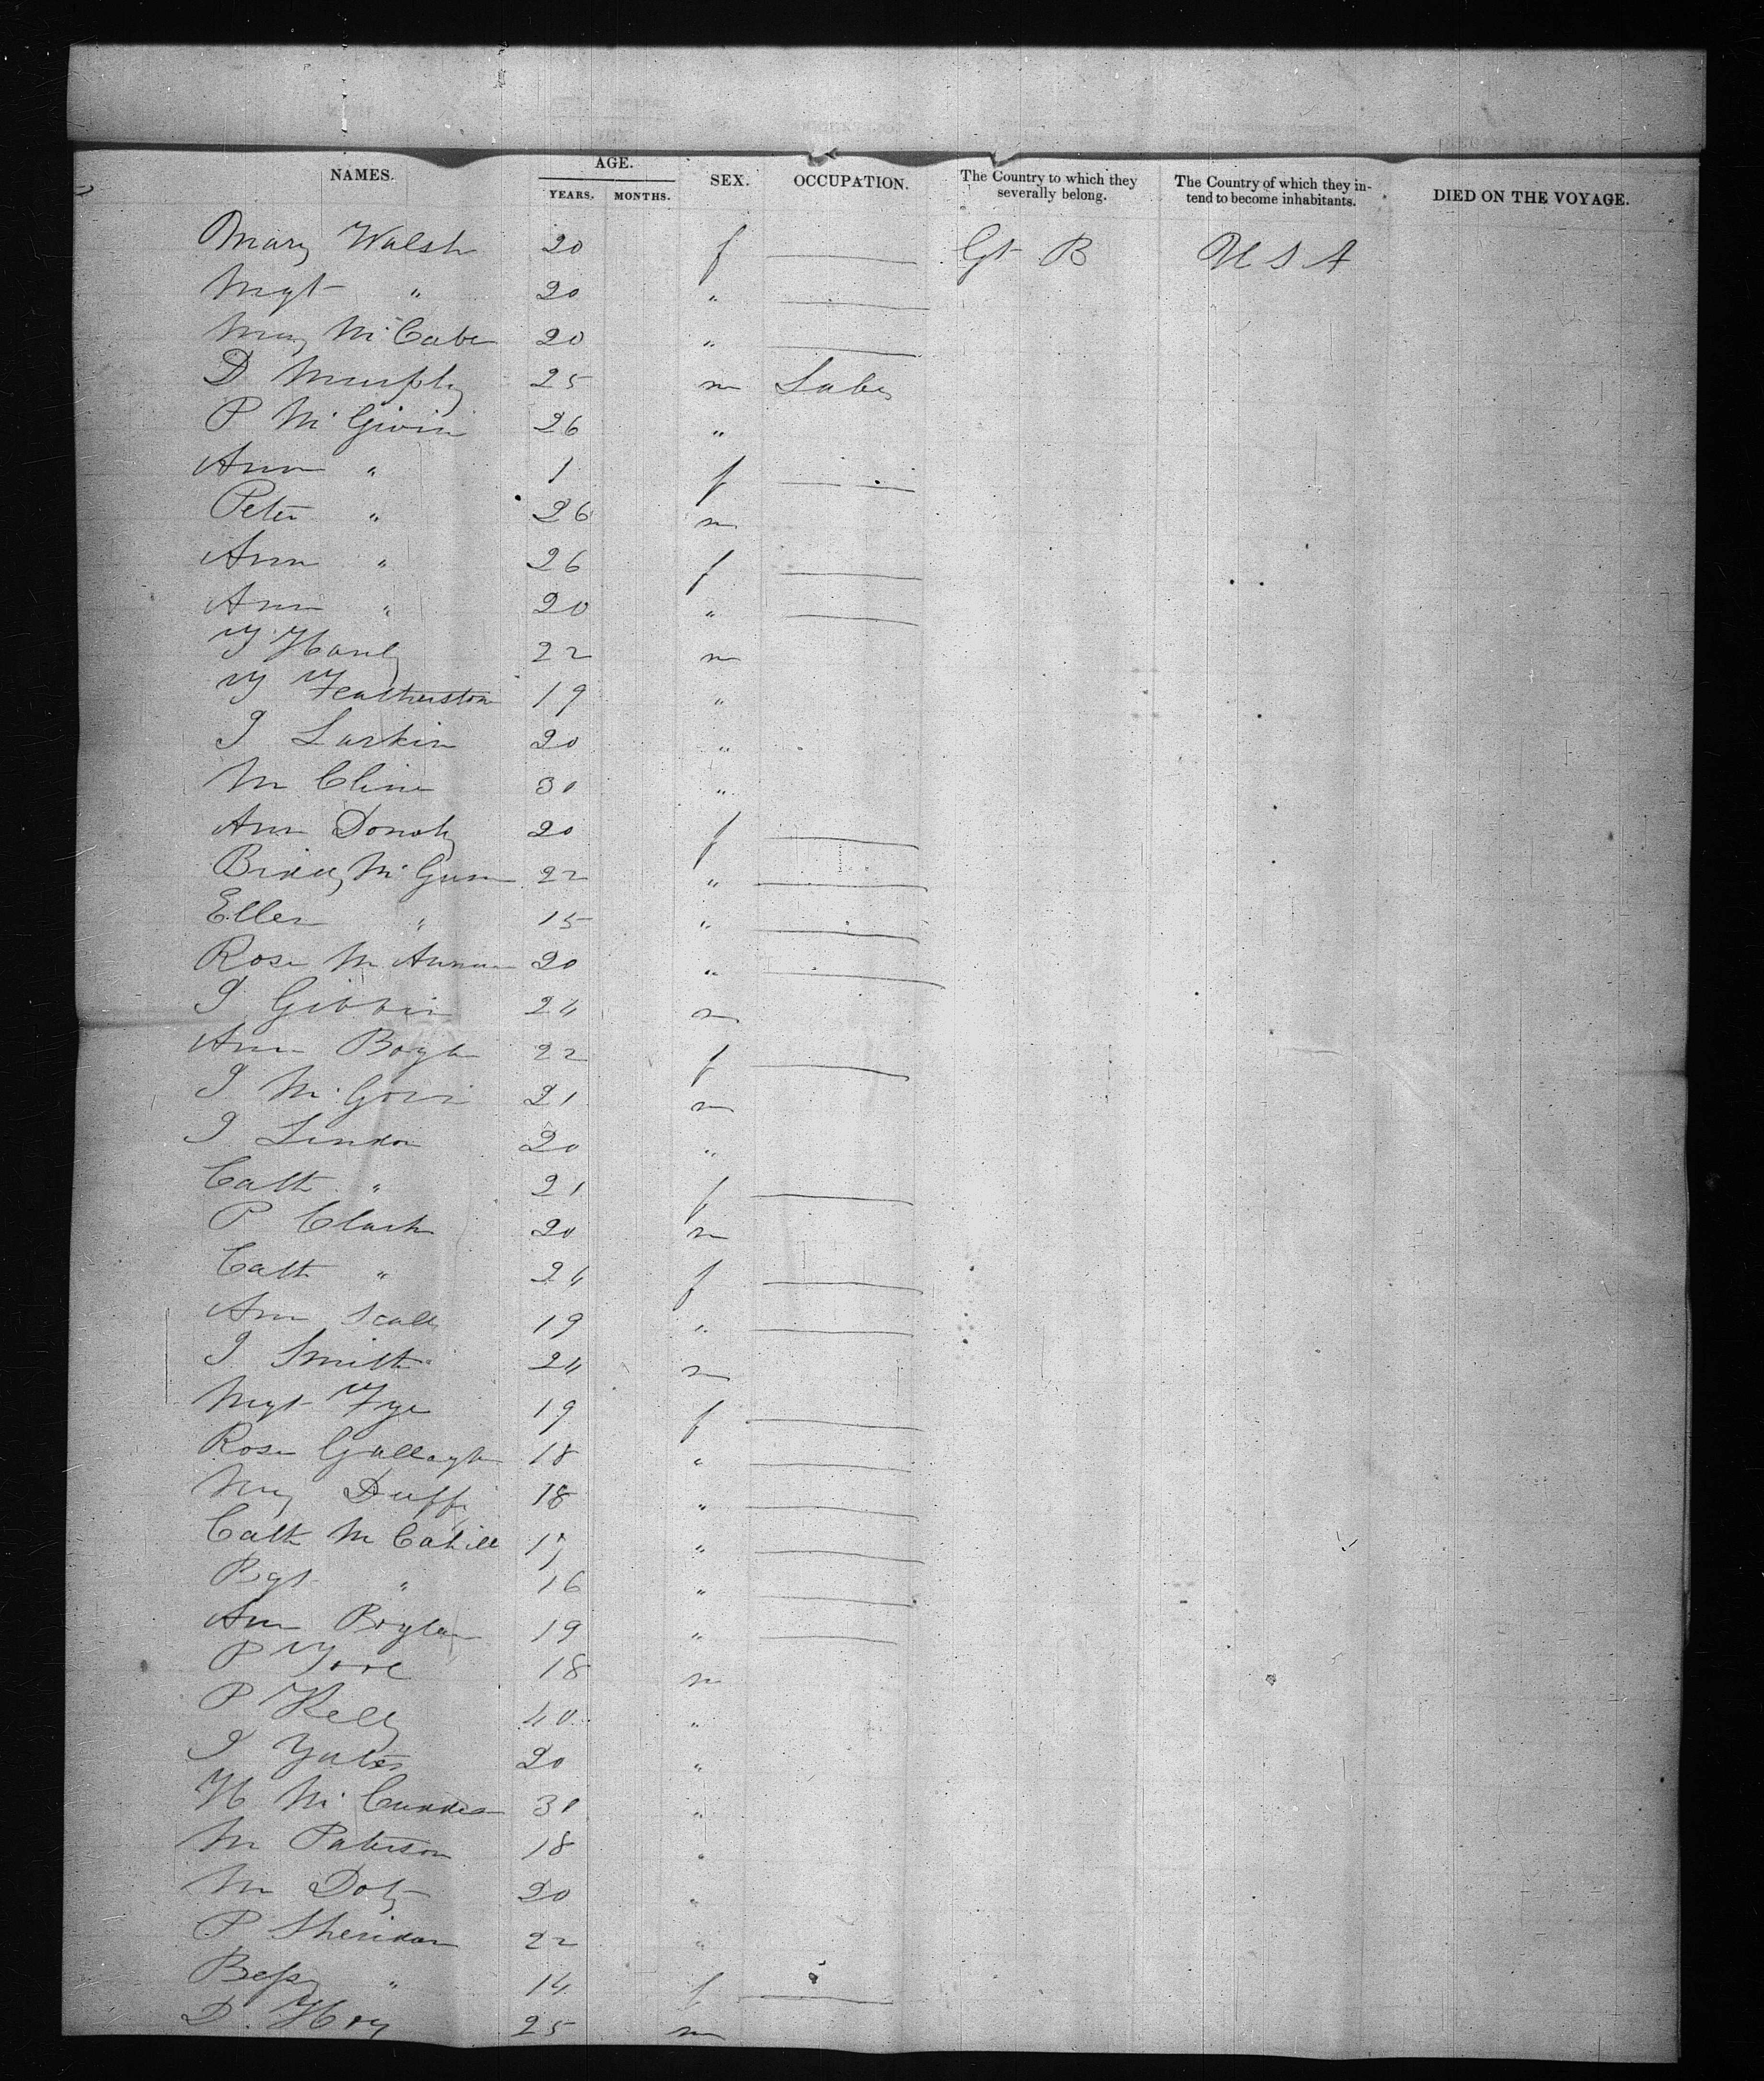 NAMES. AGE. SEX. OCCUPATION. The Country to which they severally belong. The Country of which they intend to become inhabitants. DIED ON THE VOYAGE.
YEARS. MONTHS.
Mary Walsh 20 f — Gt B U S A
Mgt " 20 " —
Mary McCabe 20 " —
D Murphy 25 m Labr
P McGivin 26 "
Ann " 1 f —
Peter " 26 m
Ann " 26 f —
Ann " 20 " —
J Hanly 22 m
J Featherston 19 "
J Larkin 20 "
M Cline 30 "
Ann Donoly 20 f —
Biddy McGunn 22 " —
Ellen " 15 " —
Rose 20 " —
J Gibbin 24 m
Ann Boyle 22 f —
J McGovrn 21 m
J Lindon 20 "
Cath " 21 f —
P Clark 20 m
Cath " 24 f —
Ann Scally 19 " —
J Smith 24 m
Mgt Fye 19 f —
Rose Gallagh 18 " —
My Duffy 18 " —
Cath McCahill 17 " —
Bgt " 16 " —
Ann Boylan 19 " —
P 18 m
P Kelly 40 "
J Yates 20 "
H McCudden 30 "
M Paterson 18 "
M Doty 20 "
P Sheridan 22 "
Bessy " 14 f —
D. Hoy 25 m